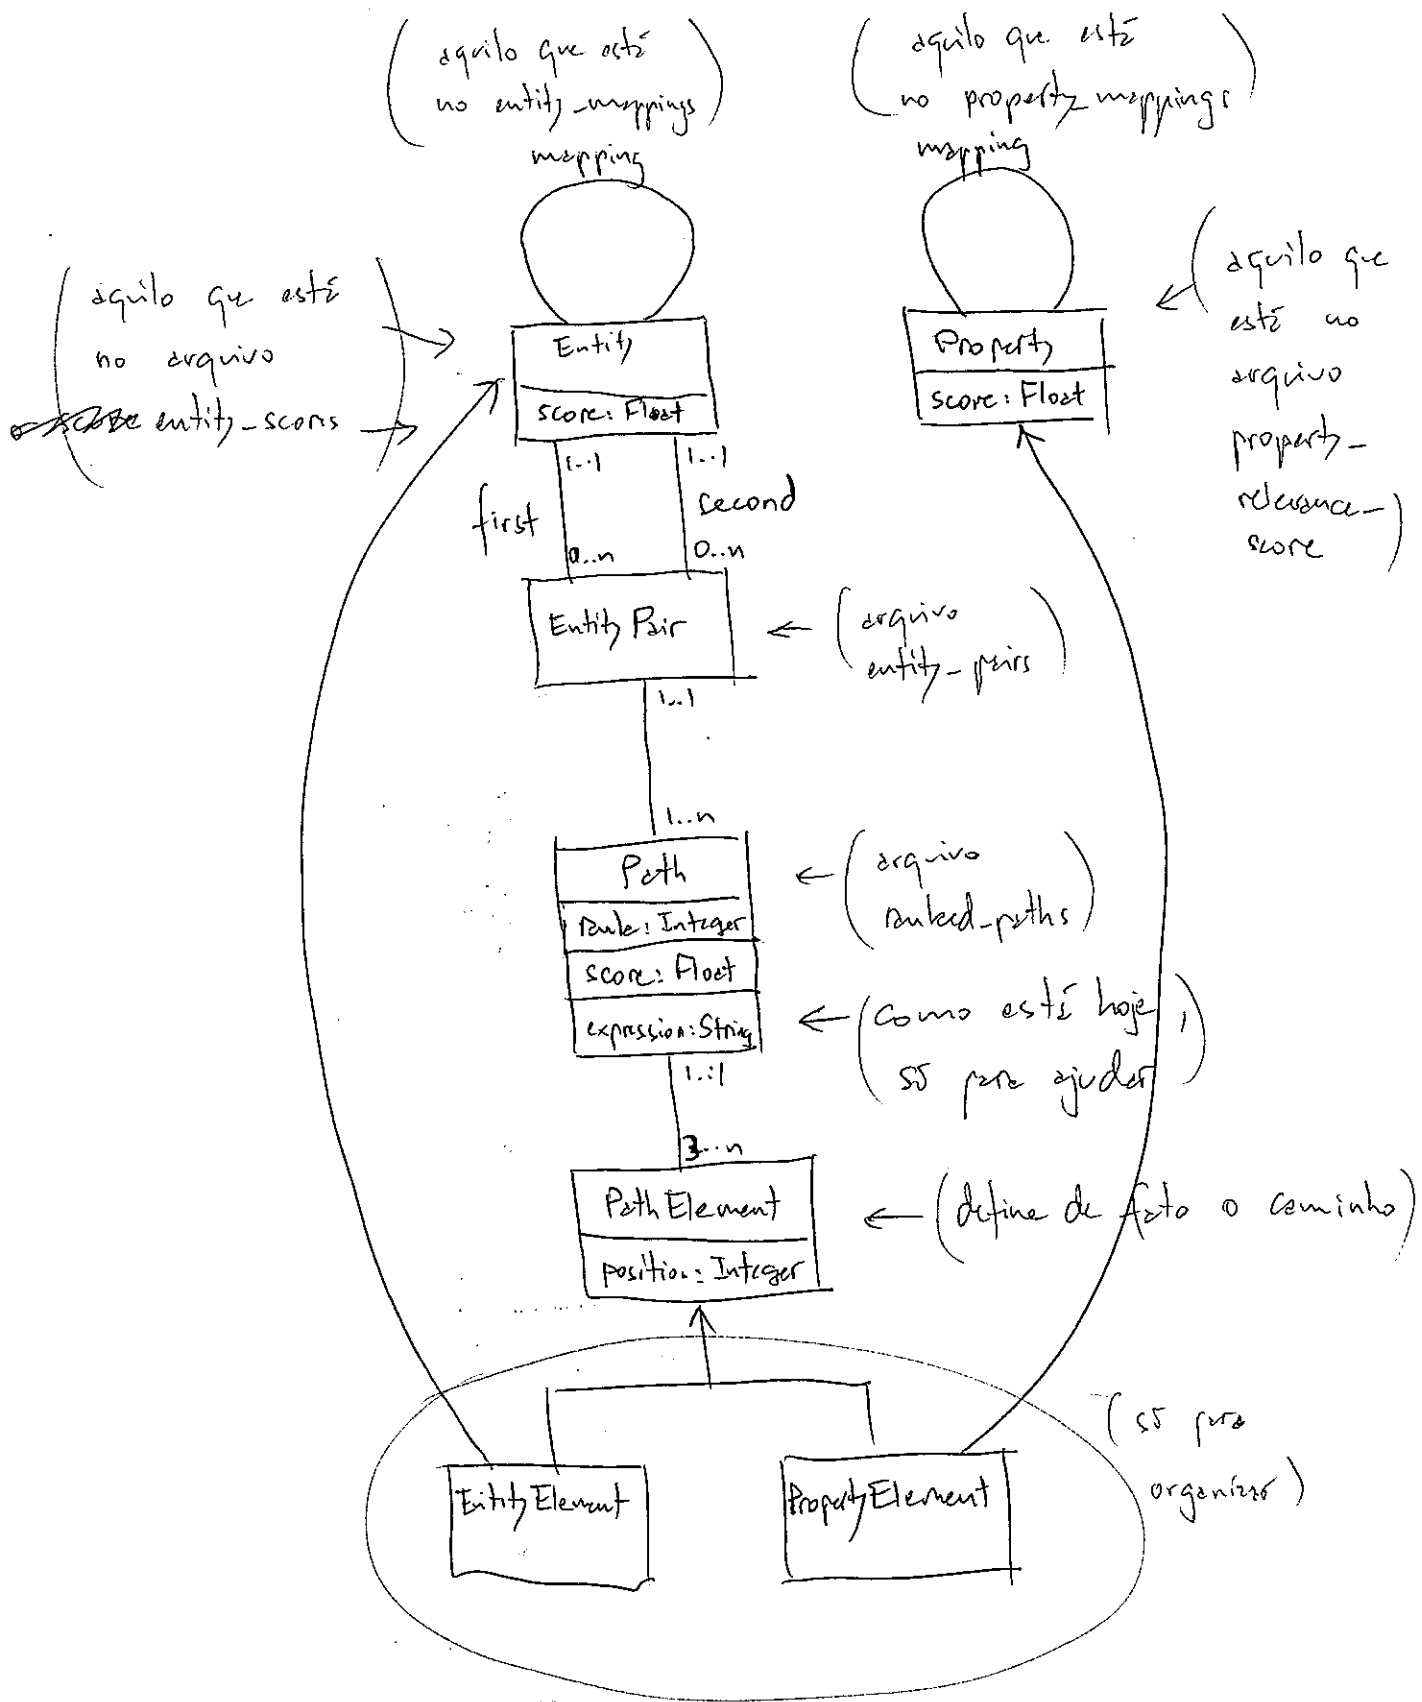 aquilo que está
no entity_mappings
mapping
aquilo que está
no property_mappings
mapping
(aquilo que está
no arquivo
entity_scores)
Entity
score: Float
Property
score: Float
(aquilo que
está no
arquivo
property_
relevance_
score)
1..1
1..1
first
second
0..n
0..n
EntityPair
(arquivo
entity_pairs)
1..1
1..n
Path
rank: Integer
score: Float
expression: String
(arquivo
ranked_paths)
(como está hoje,
só para ajudar)
1..1
3..n
PathElement
position: Integer
(define de fato o caminho)
EntityElement
PropertyElement
(só para
organizar)